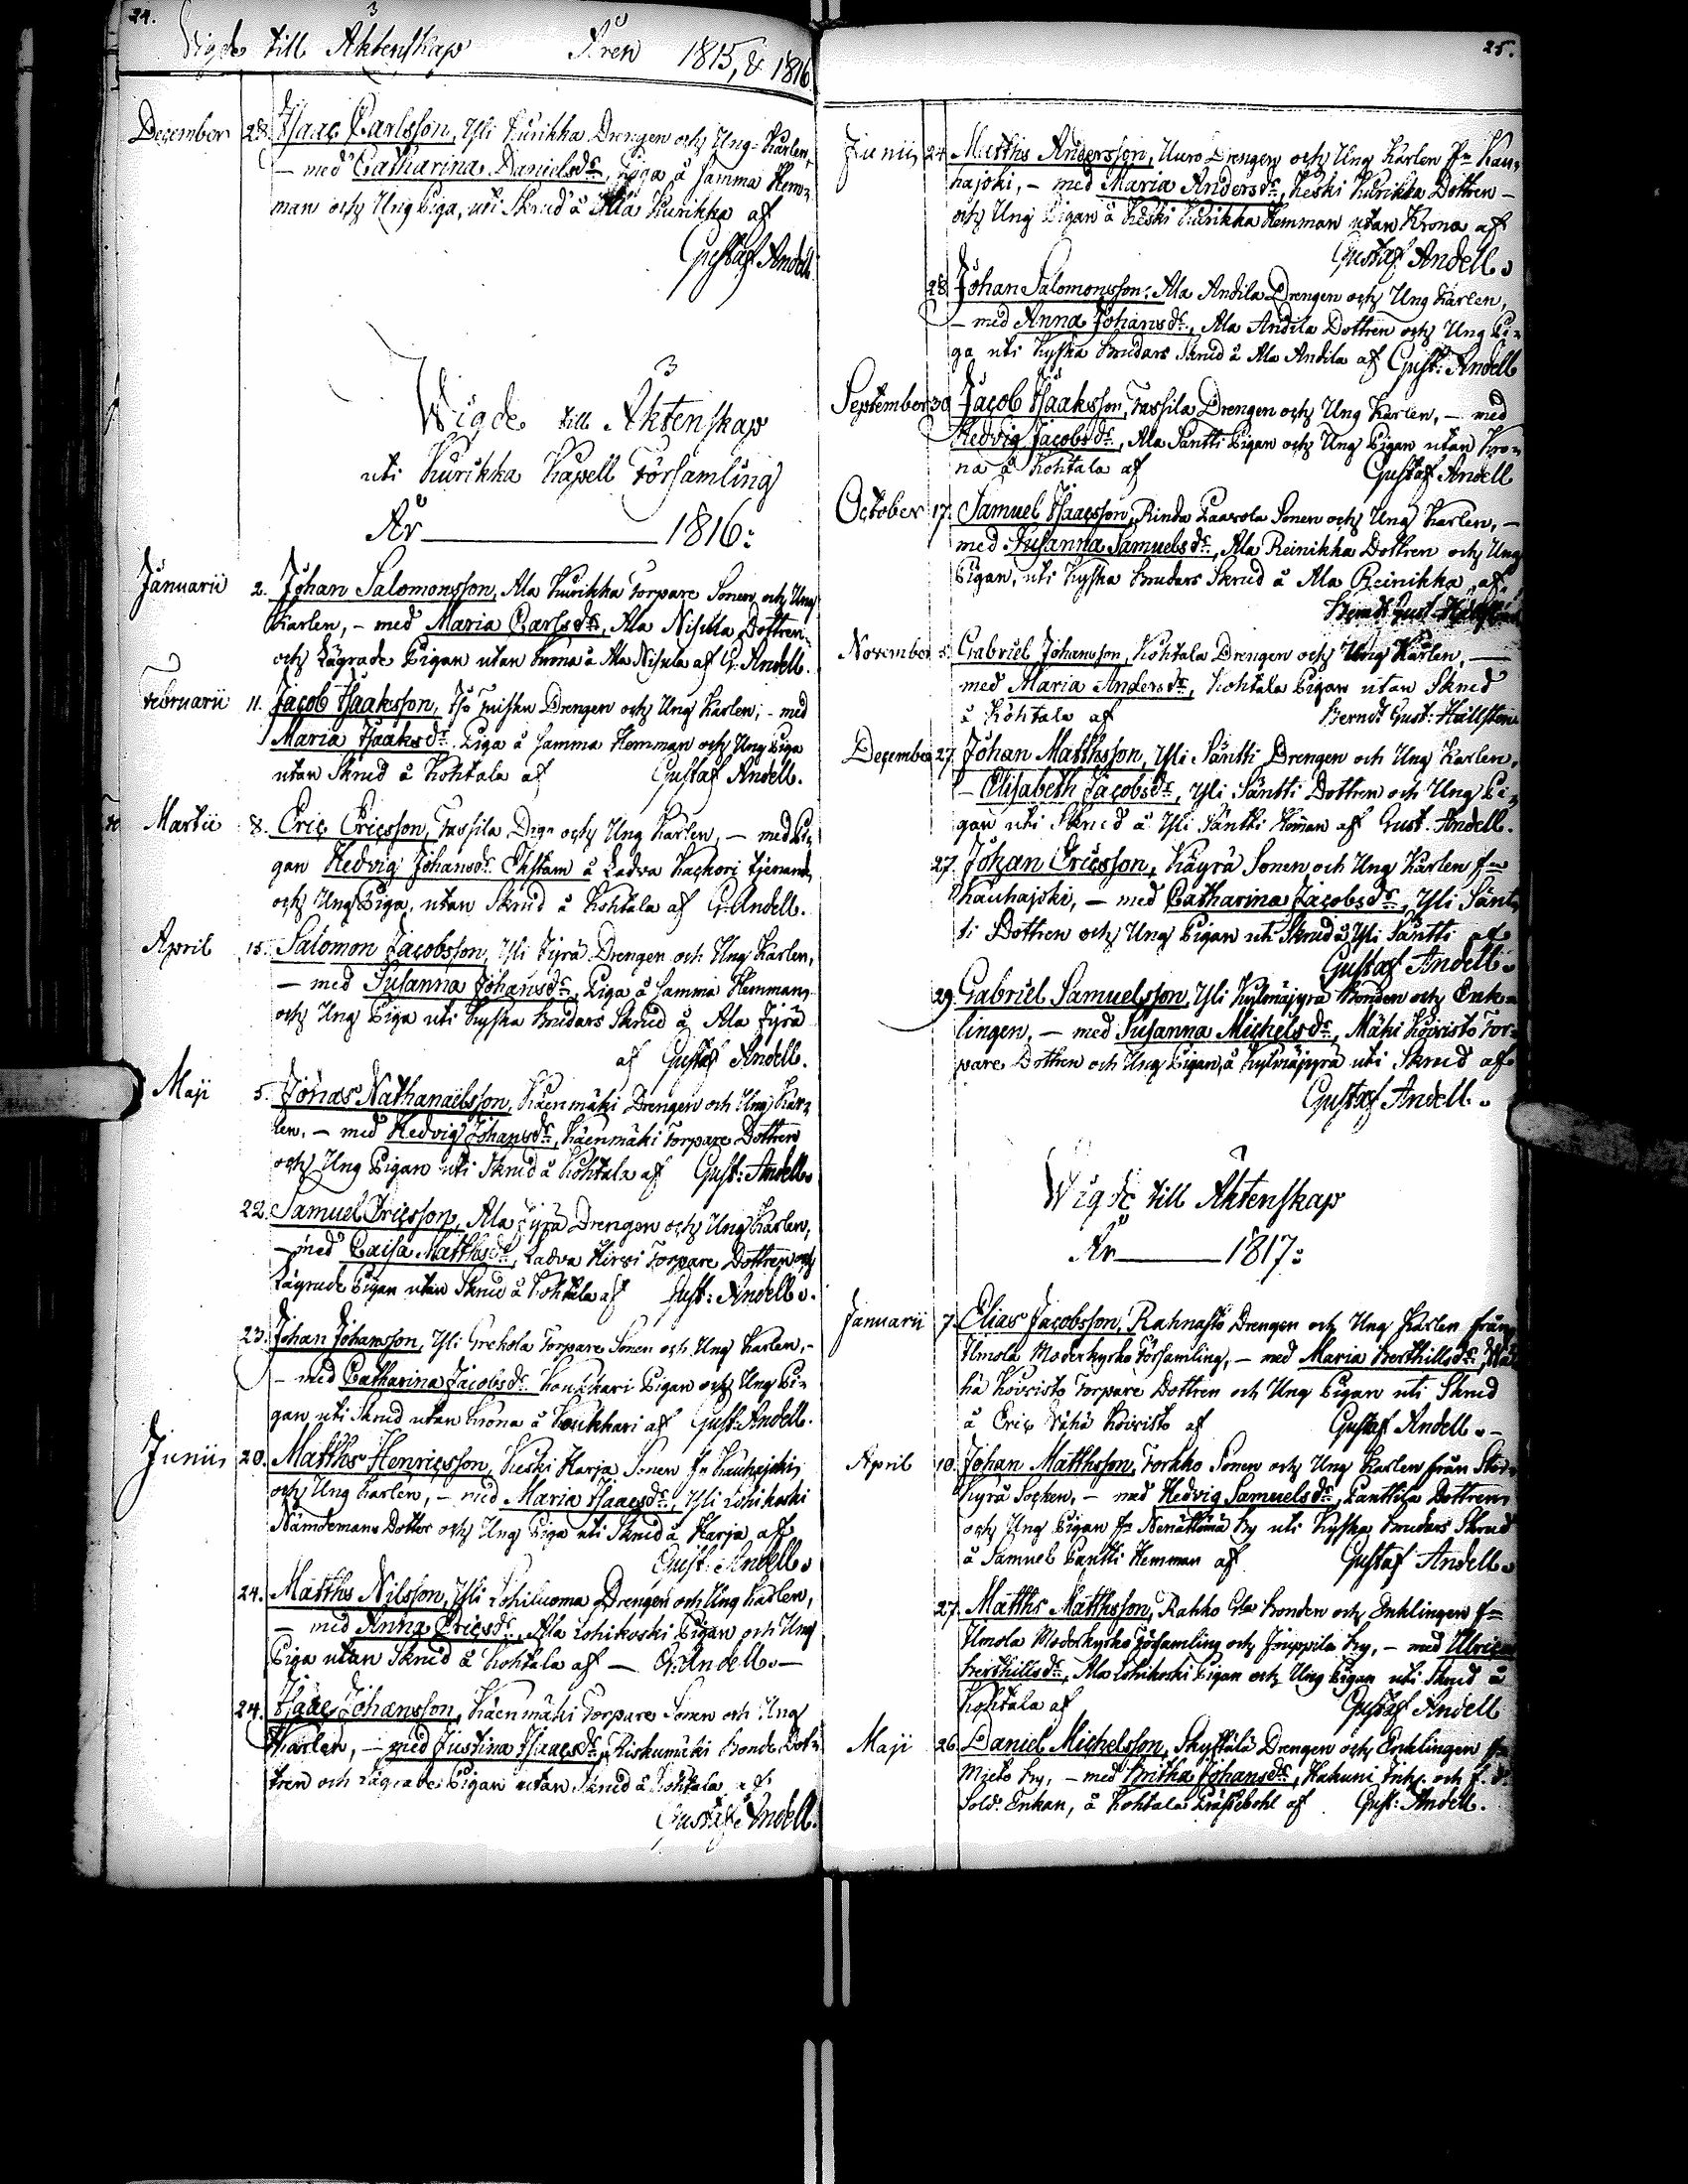 24.
Vigde till Äktenskap Åren 1815, & 1816
December 28. Isaac Carlsson, Yli Kurikka Drengen och Ung-Karlen,
– med Catharina Danielsdr, Piga å samma Hem-
man och Ung Piga, uti Skrud å Ala Kurikka af
Gustaf Andell.
Wigde till Äktenskap
uti Kurikka Kapell Församling
År 1816:
Januarii 2. Johan Salomonsson, Ala Kurikka Torpare Sonen och Ung
Karlen, – med Maria Carlsdr, Ala Nisula Dottren
och Lägrade Pigan utan krona å Ala Nisula af G. Andell.
Februarii 11. Jacob Isaaksson, Iso Drengen och Ung Karlen, – med
Maria Isaaksdr. Piga å samma Hemman och Ung Piga
utan Skrud å Kohtala af Gustaf Andell.
Martii 8. Eric Ericsson, Tassila Dregn och Ung Karlen, – med Pi-
gan Hedvig Johansdr. Ekstam å Ladva Kackori tjenande
och Ung Piga, utan Skrud å Kohtala af G. Andell.
April 15. Salomon Jacobsson, Yli Jyrä Drengen och Ung Karlen,
– med Susanna Johansdr, Piga å samma Hemman
och Ung Piga uti kyska Brudars Skrud å Ala Jyrä
af Gustaf Andell.
Maji 5. Jonas Nathanaelsson, Käenmäki Drengen och Ung Kar-
len, – med Hedvig Johansdr, Käenmäki Torpare Dottren
och Ung Pigan uti Skrud å Kohtala af Gust: Andell.
22. Samuel Ericsson, Ala Jyrä Drengen och Ung Karlen,
– med Caisa Matthsdr, Ladva Hirsi Torpare Dottren och
Lägrade Pigan utan Skrud å Kohtala af Gust: Andell.
23. Johan Johansson, Yli Grekola Torpare Sonen och Ung Karlen,
– med Catharina Jacobsdr. Koukkari Pigan och Ung Pi-
gan uti Skrud utan krona å Koukkari af Gust: Andell.
Junii 20. Matths Henricsson, Keski Harja Sonen fn Kauhajoki
och Ung Karlen, – med Maria Isaacsdr, Yli Lohikoski
Nämdemans Dotter och Ung Piga uti Skrud å Harja af
Gust: Andell.
24. Matths Nilsson, Yli Lohiluoma Drengen och Ung Karlen,
– med Anna Ericsdr, Ala Lohikoski Pigan och Ung
Piga utan Skrud å Kohtala af – G: Andell. –
24. Isaac Johansson, Käenmäki Torpare Sonen och Ung
Karlen, – med Justina Isaacsdr, Riskumäki Bonde Dot-
tren och Lägrade Pigan utan Skrud å Kohtala af
Gustaf Andell.
25.
Junii 24. Matths Andersson, Uuro Drengen och Ung Karlen fn Kau-
hajoki, – med Maria Andersdr, Keski Kurikka Dottren –
och Ung Pigan å Keski Kurikka Hemman utan Krona af
Gustaf Andell.
28. Johan Salomonsson, Ala Andila Drengen och Ung Karlen,
– med Anna Johansdr, Ala Andila Dottren och Ung Pi-
ga uti kyska Brudars Skrud å Ala Andila af Gust: Andell
September 30. Jacob Isaaksson, Tassila Drengen och Ung Karlen, – med
Hedvig Jacobsdr, Ala Säntti Pigan och Ung Pigan utan Kro-
na å Kohtala af Gustaf Andell
October 17. Samuel Isaacsson, Rinda Paavola Sonen och Ung Karlen, –
med Susanna Samuelsdr, Ala Reinikka Dottren och Ung
Pigan, uti kyska Brudars Skrud å Ala Reinikka, af
Berndt Gust: Hällsten
November 5. Gabriel Johansson, Kohtala Drengen och Ung Karlen, –
med Maria Andersdr, Kohtala Pigan utan Skrud
å Kohtala af Berndt Gust: Hällsten
December 27. Johan Matthsson, Yli Säntti Drengen och Ung Karlen,
– Elisabeth Jacobsdr, Yli Säntti Dottren och Ung Pi-
gan uti Skrud å Yli Säntti Heman af Gust. Andell.
27. Johan Ericsson, Käyrä Sonen och Ung Karlen fn
Kauhajoki, – med Catharina Jacobsdr, Yli Sänt-
ti Dottren och Ung Pigan uti Skrud å Yli Säntti af
Gustaf Andell.
29. Gabriel Samuelsson, Yli Kylmäjyrä Bonden och Enk-
lingen, – med Susanna Michelsdr, Mäki Koivisto Tor-
pare Dottren och Ung Pigan, å Kylmäjyrä uti Skrud af
Gustaf Andell.
Wigde till Äktenskap
År 1817:
Januarii 7. Elias Jacobsson, Rahnasto Drengen och Ung Karlen från
Ilmola Moderkyrko Församling, – med Maria Berthillsdr, Wä
hä Koivisto Torpare Dottren och Ung Pigan uti Skrud
å Eric Wähä Koivisto af Gustaf Andell. –
April 10. Johan Matthsson, Torkko Sonen och Ung Karlen från Stor-
kyrå Socken, – med Hedvig Samuelsdr, Panttila Dottren
och Ung Pigan fn Nenättömä By uti Kyska Brudars Skrud
å Samuel Pantti Hemman af Gustaf Andell.
27. Matths Matthsson, Rahko Bonden och Enklingen fn
Ilmola Moderkyrko Församling och Jouppila By, – med Ulrica
Berthillsdr, Ala Lohikoski Pigan och Ung Pigan uti Skrud å
Kohtala af Gustaf Andell
Maji 26. Daniel Michelsson, Skyttälä Drengen och Enklingen fn
Mieto By, – med Britha Johansdr, Hakuni Inhs. och f. d.
Sold: Enkan, å Kohtala af Gust: Andell.